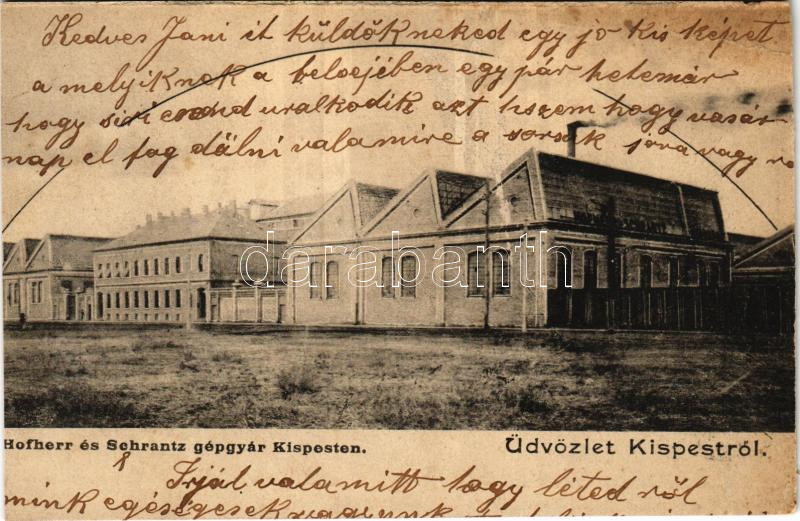 Kedves Jani it küldök neked egy jó kis képet
a melyiknek a belsejében egy pár hetemár
hogy uralkodik azt hszem hogy vasár
nap el fog dölni valamire a sorsek vagy
darabanth
Hofherr és Schrantz gépgyár Kispesten.
Üdvözlet Kispestről.
Irjál valamitt hogy léted ről
mink egéségesek vagyunk